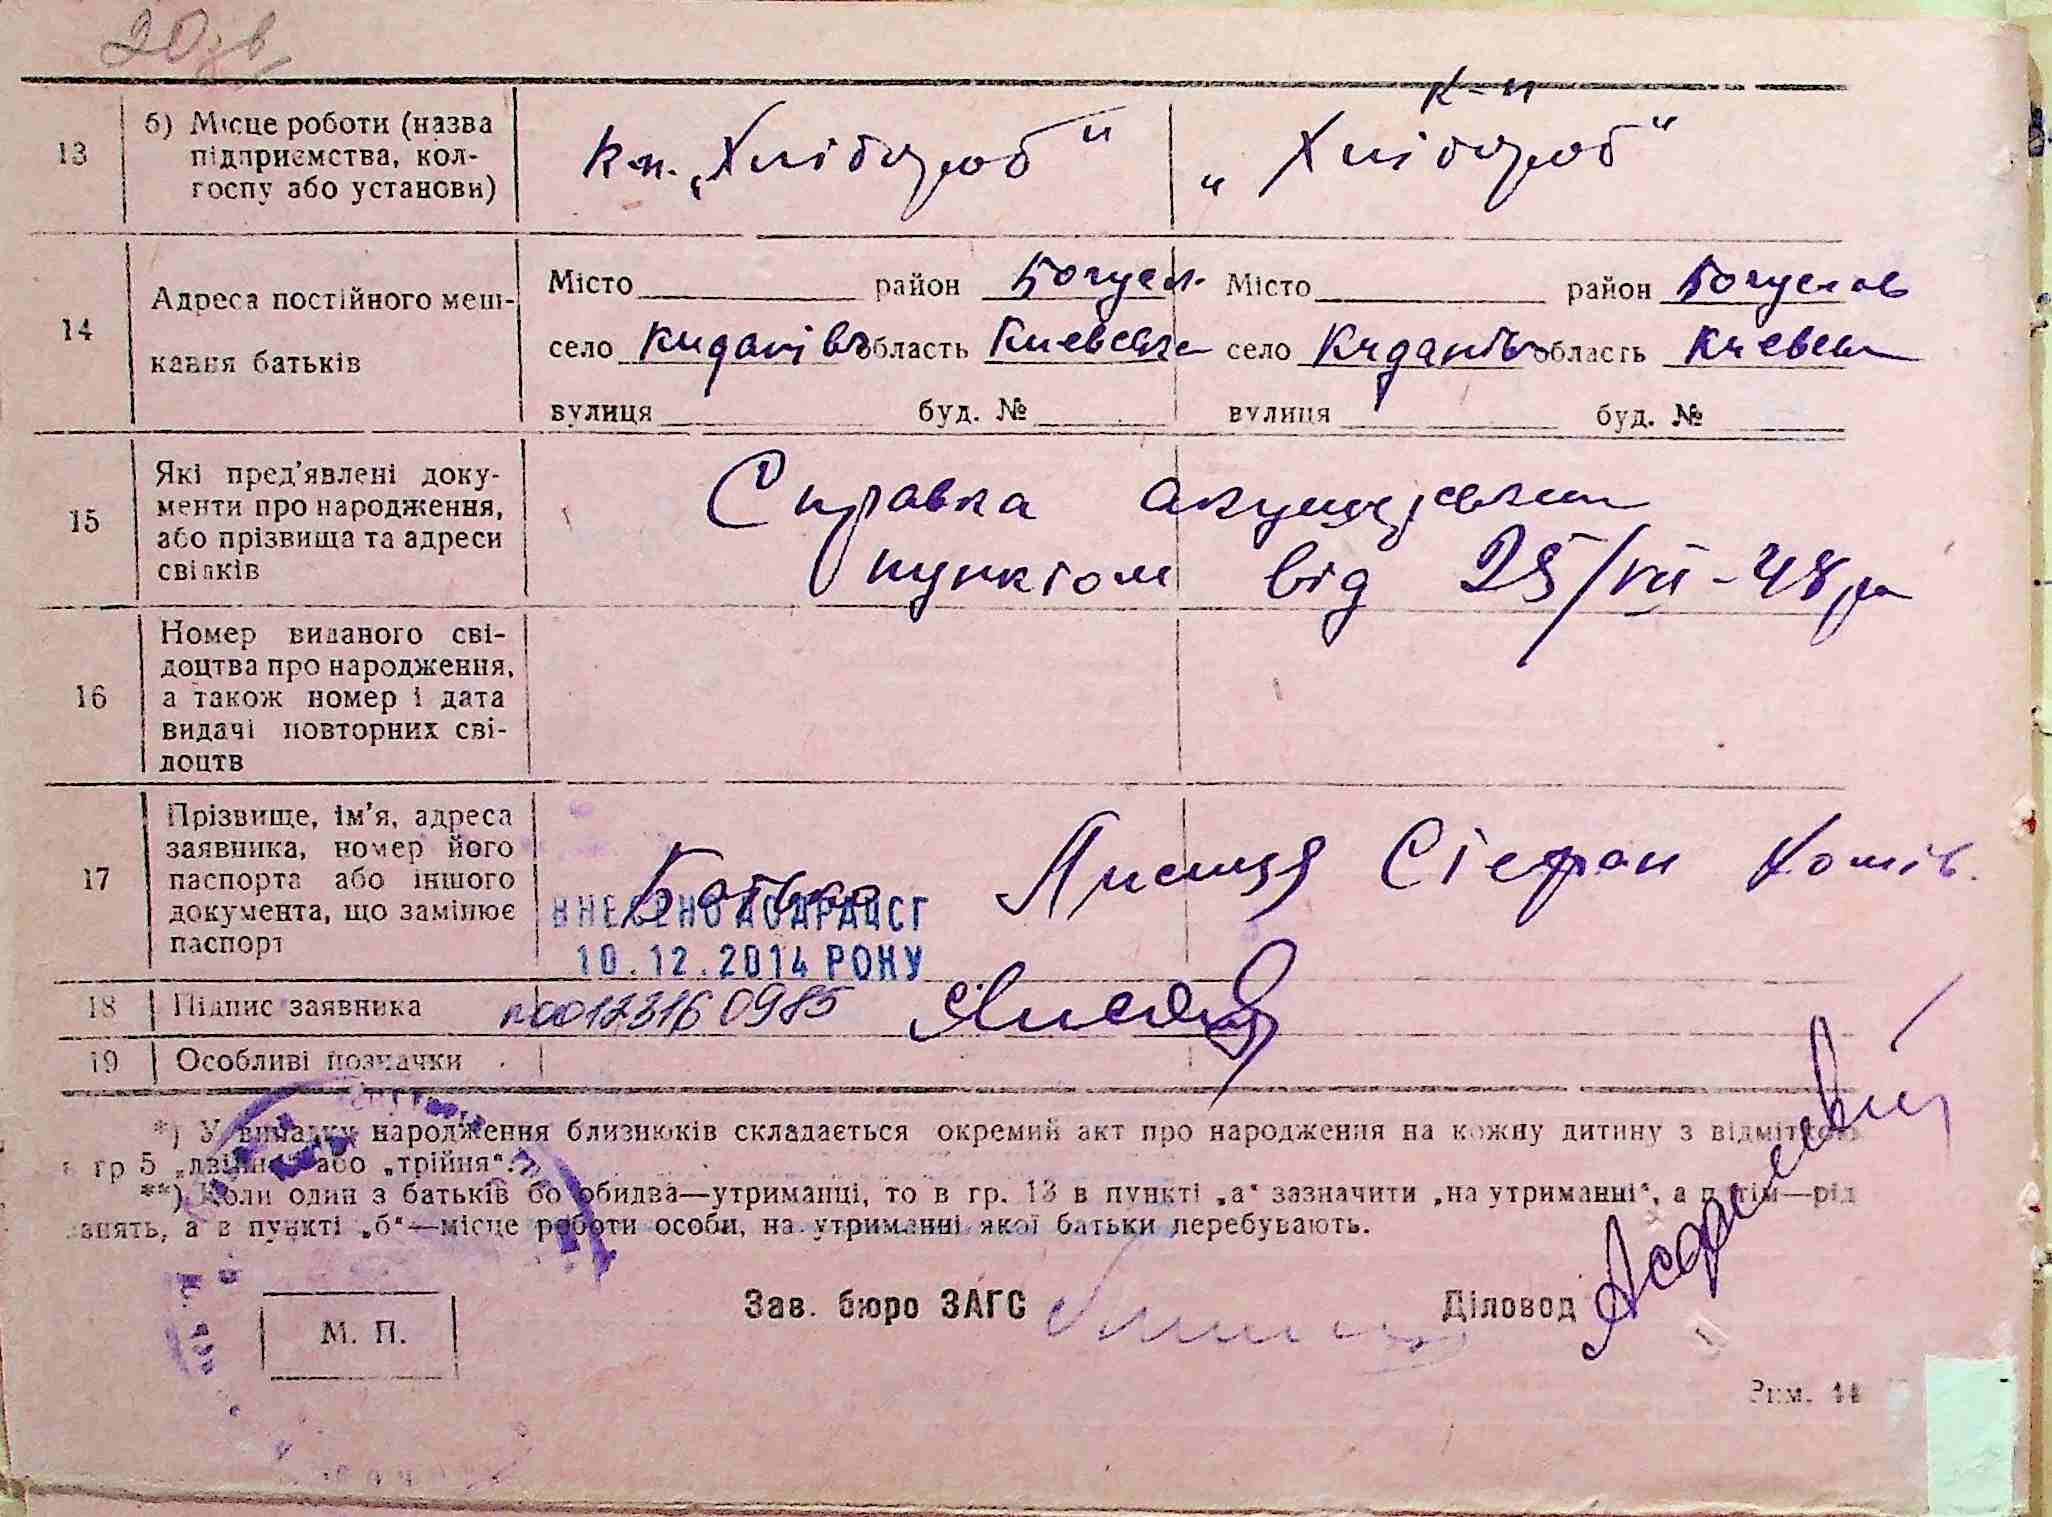 20зв.
13
б) Місце роботи (назва
підприємства, кол-
госпу або установи)
к-п. „Хлібороб"
к-п
„Хлібороб"
14
Адреса постійного меш-
кання батьків
Місто район Богусл.
село Киданівк область Киевськ
вулиця буд. №
Місто район Богуслав
село Киданівк область Киевськ
вулиця буд. №
15
Які пред'явлені доку-
менти про народження,
або прізвища та адреси
свідків
Справка акушерським
пунктом від 25/VII-48р
16
Номер виданого сві-
доцтва про народження,
а також номер і дата
видачі повторних сві-
доцтв
17
Прізвище, ім'я, адреса
заявника, номер його
паспорта або іншого
документа, що замінює
паспорт
Батько Лисиця Стефан Хомів.
ВНЕСЕНО ДО ДРАЦСГ
10.12.2014 РОКУ
18
Підпис заявника
00123160985
19
Особливі позначки
*) У випадку народження близнюків складається окремий акт про народження на кожну дитину з відміткою
в гр 5 „двійня" або „трійня".
**) Коли один з батьків бо обидва—утриманці, то в гр. 13 в пункті „а" зазначити „на утриманні", а потім—рід
занять, а в пункті „б"—місце роботи особи, на утриманні якої батьки перебувають.
М. П.
Зав. бюро ЗАГС
Діловод
Рим. 44